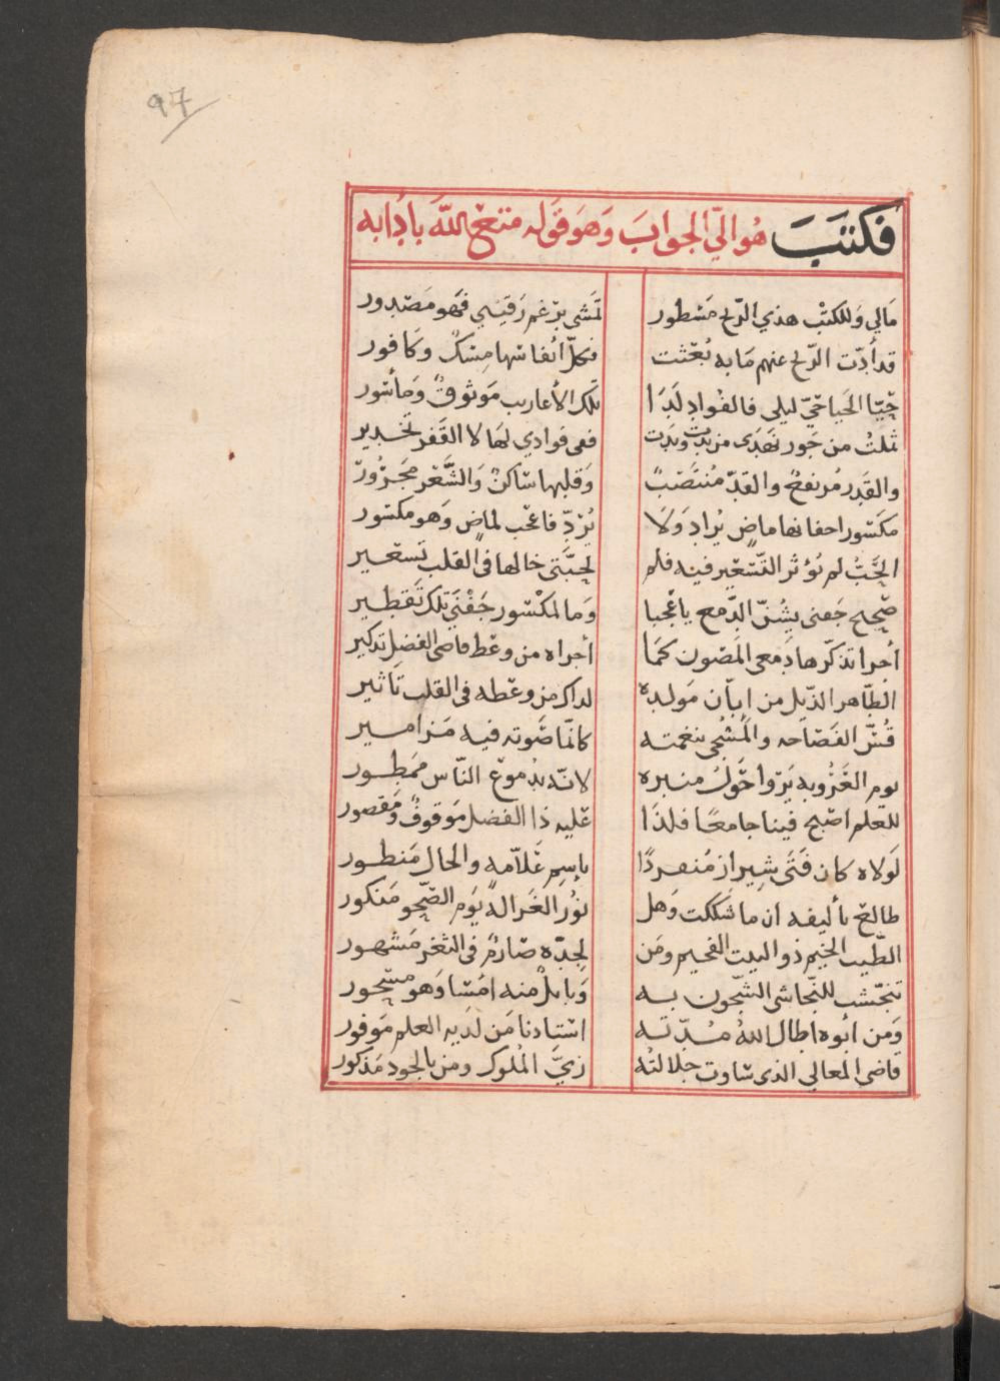 97
فكتب هو الي الجواب وهو قوله متع الله بادابه
مالي وللكتب هذي الريح مسطور تمشي برغم رقيبي فهو مصدور
قد أدّت الريح عنهم ما به بُعثت فكلّ انفاسها مسك وكافور
حيّا الحيا حيّ ليلى فالفواد لدا تلك الأعاريب موثوق ومأسور
ثملت من جور نهدى من بدت وبدت ففى فوادي لها لا القفر تخدير
والقدر مرتفع والقدّ منتصب وقلبها ساكن والشّعر مجرور
مكسور اجفانها ماض يراد ولا يُردّ فاعجب لماض وهو مكسور
الحبّ لم نؤثر التسعير فيه فلم لحبّتى خالها فى القلب تسعير
صحيح جفنى يشنّ الدّمع ياعجبا وما لمكسور جفني تلك تقطير
أجرا تذكّرها دمعى المصون كما أجراه من وعظ قاضى الفضل تذكير
الطّاهر الذّيل من ابّان مولده لذاك من وعظه فى القلب تاثير
قُسّ الفصاحه والمشجى بنغمته كانّما صوته فيه مزامير
يوم العَروبه يروا حول منبره لانّه بدموع النّاس ممطور
للعلم اصبح فينا جامعًا فلذا عليه ذا الفضل موقوف ومقصور
لولاه كان فتى شيراز منفردًا باسم علاّمه والحال منطور
طالع تأليفه ان ما شككت وهل نور الغزاله يوم الصّحو منكور
الطّيب الخيم ذو البيت الفخيم ومن لجدّه صارم فى الثغر مشهور
تنجّست للنّجاشى السّجون به وبابل منه امسا وهو مسحور
ومن ابوه اطال الله مدّته استادنا من لديه العلم موفور
قاضى المعالى الذى ساوت جلالته زيّ الملوك ومن بالجود مذكور